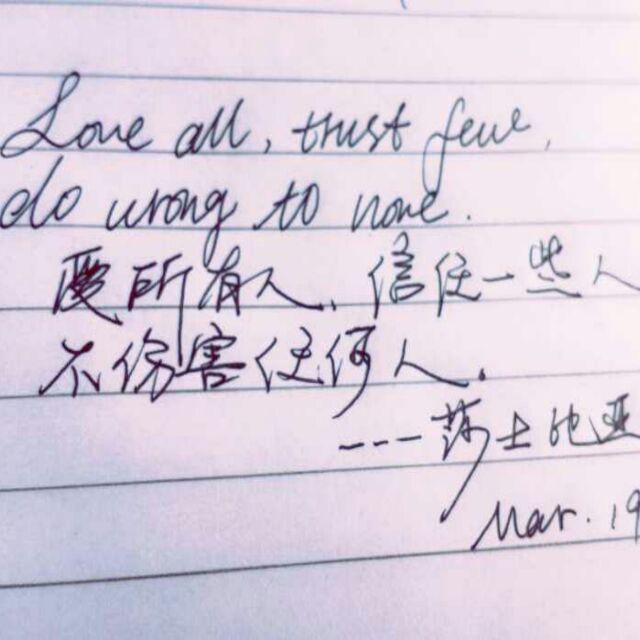 Love all, trust few,
do wrong to none.
爱所有人,信任一些人
不伤害任何人.
----莎士比亚
Mar. 19